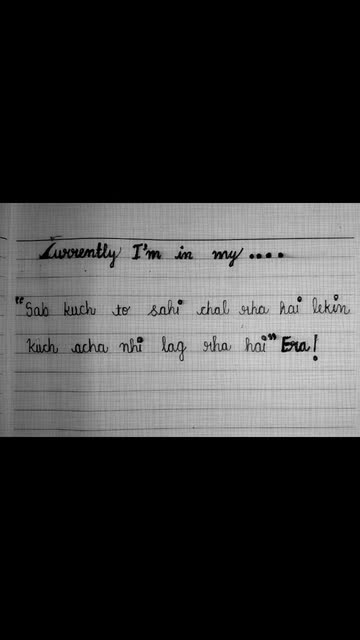 Currently I'm in my ....
"Sab kuch to sahi chal rha hai lekin
kuch acha nhi lag rha hai" Era!